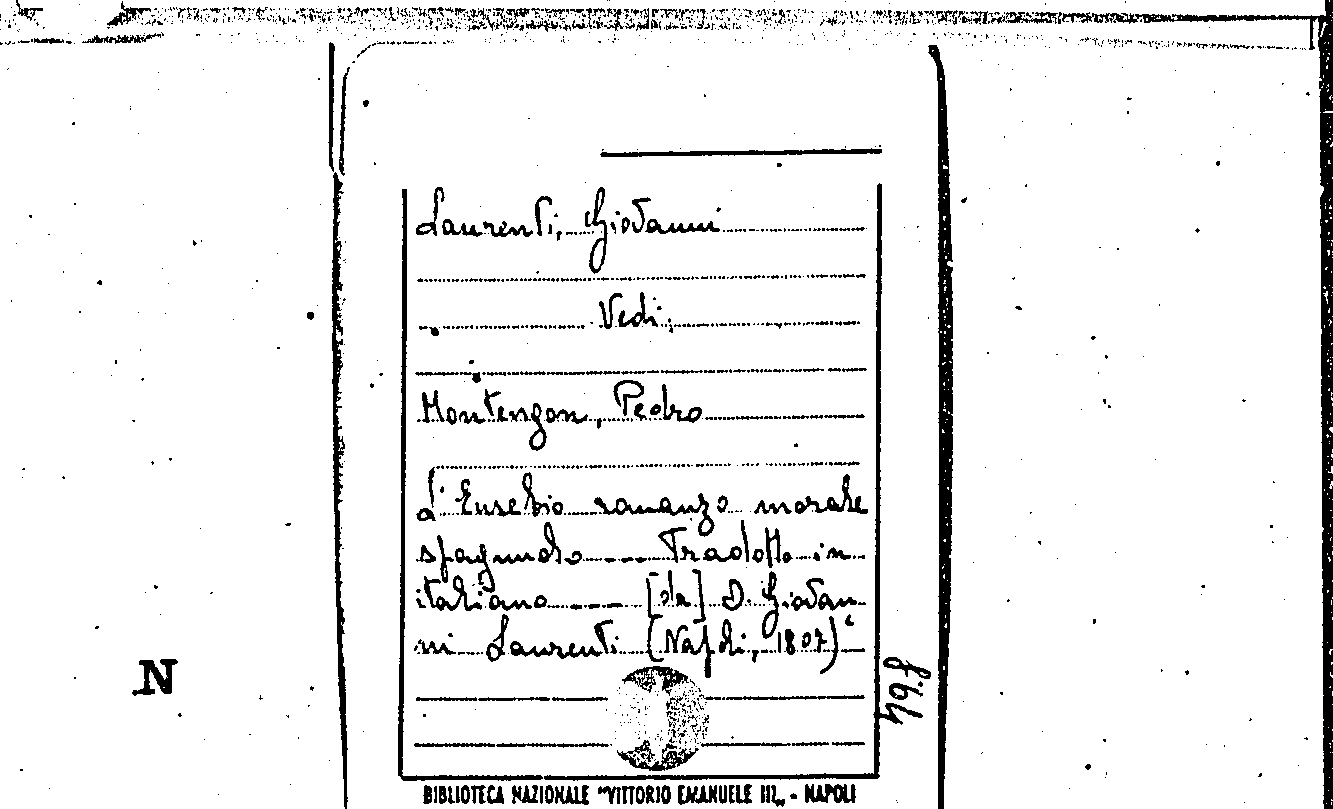 Laurenti, Giovanni
Vedi:
Montengon, Pedro
L'Eusebio romanzo morale
spagnuolo --- Tradotto in
italiano --- [da] D. Giovan
ni Laurenti (Napoli, 1807)
N
BIBLIOTECA NAZIONALE "VITTORIO EMANUELE III„ - NAPOLI